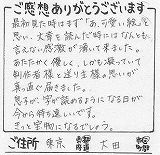 ご感想ありがとうございます
最初見た時はまず「あ、可愛い絵」を
思い、文章を読んだ時にはなんとも
言えない感激が湧いて来ました。
あたたかく優しく、しかも凝っていて
制作者様と送り主様の思いが
真っ直ぐ届きました。
息子が、字が読めるようになる日が
今から待ち遠しいです。
きっと宝物になるでしょう。
ご住所 東京 都 大田 区